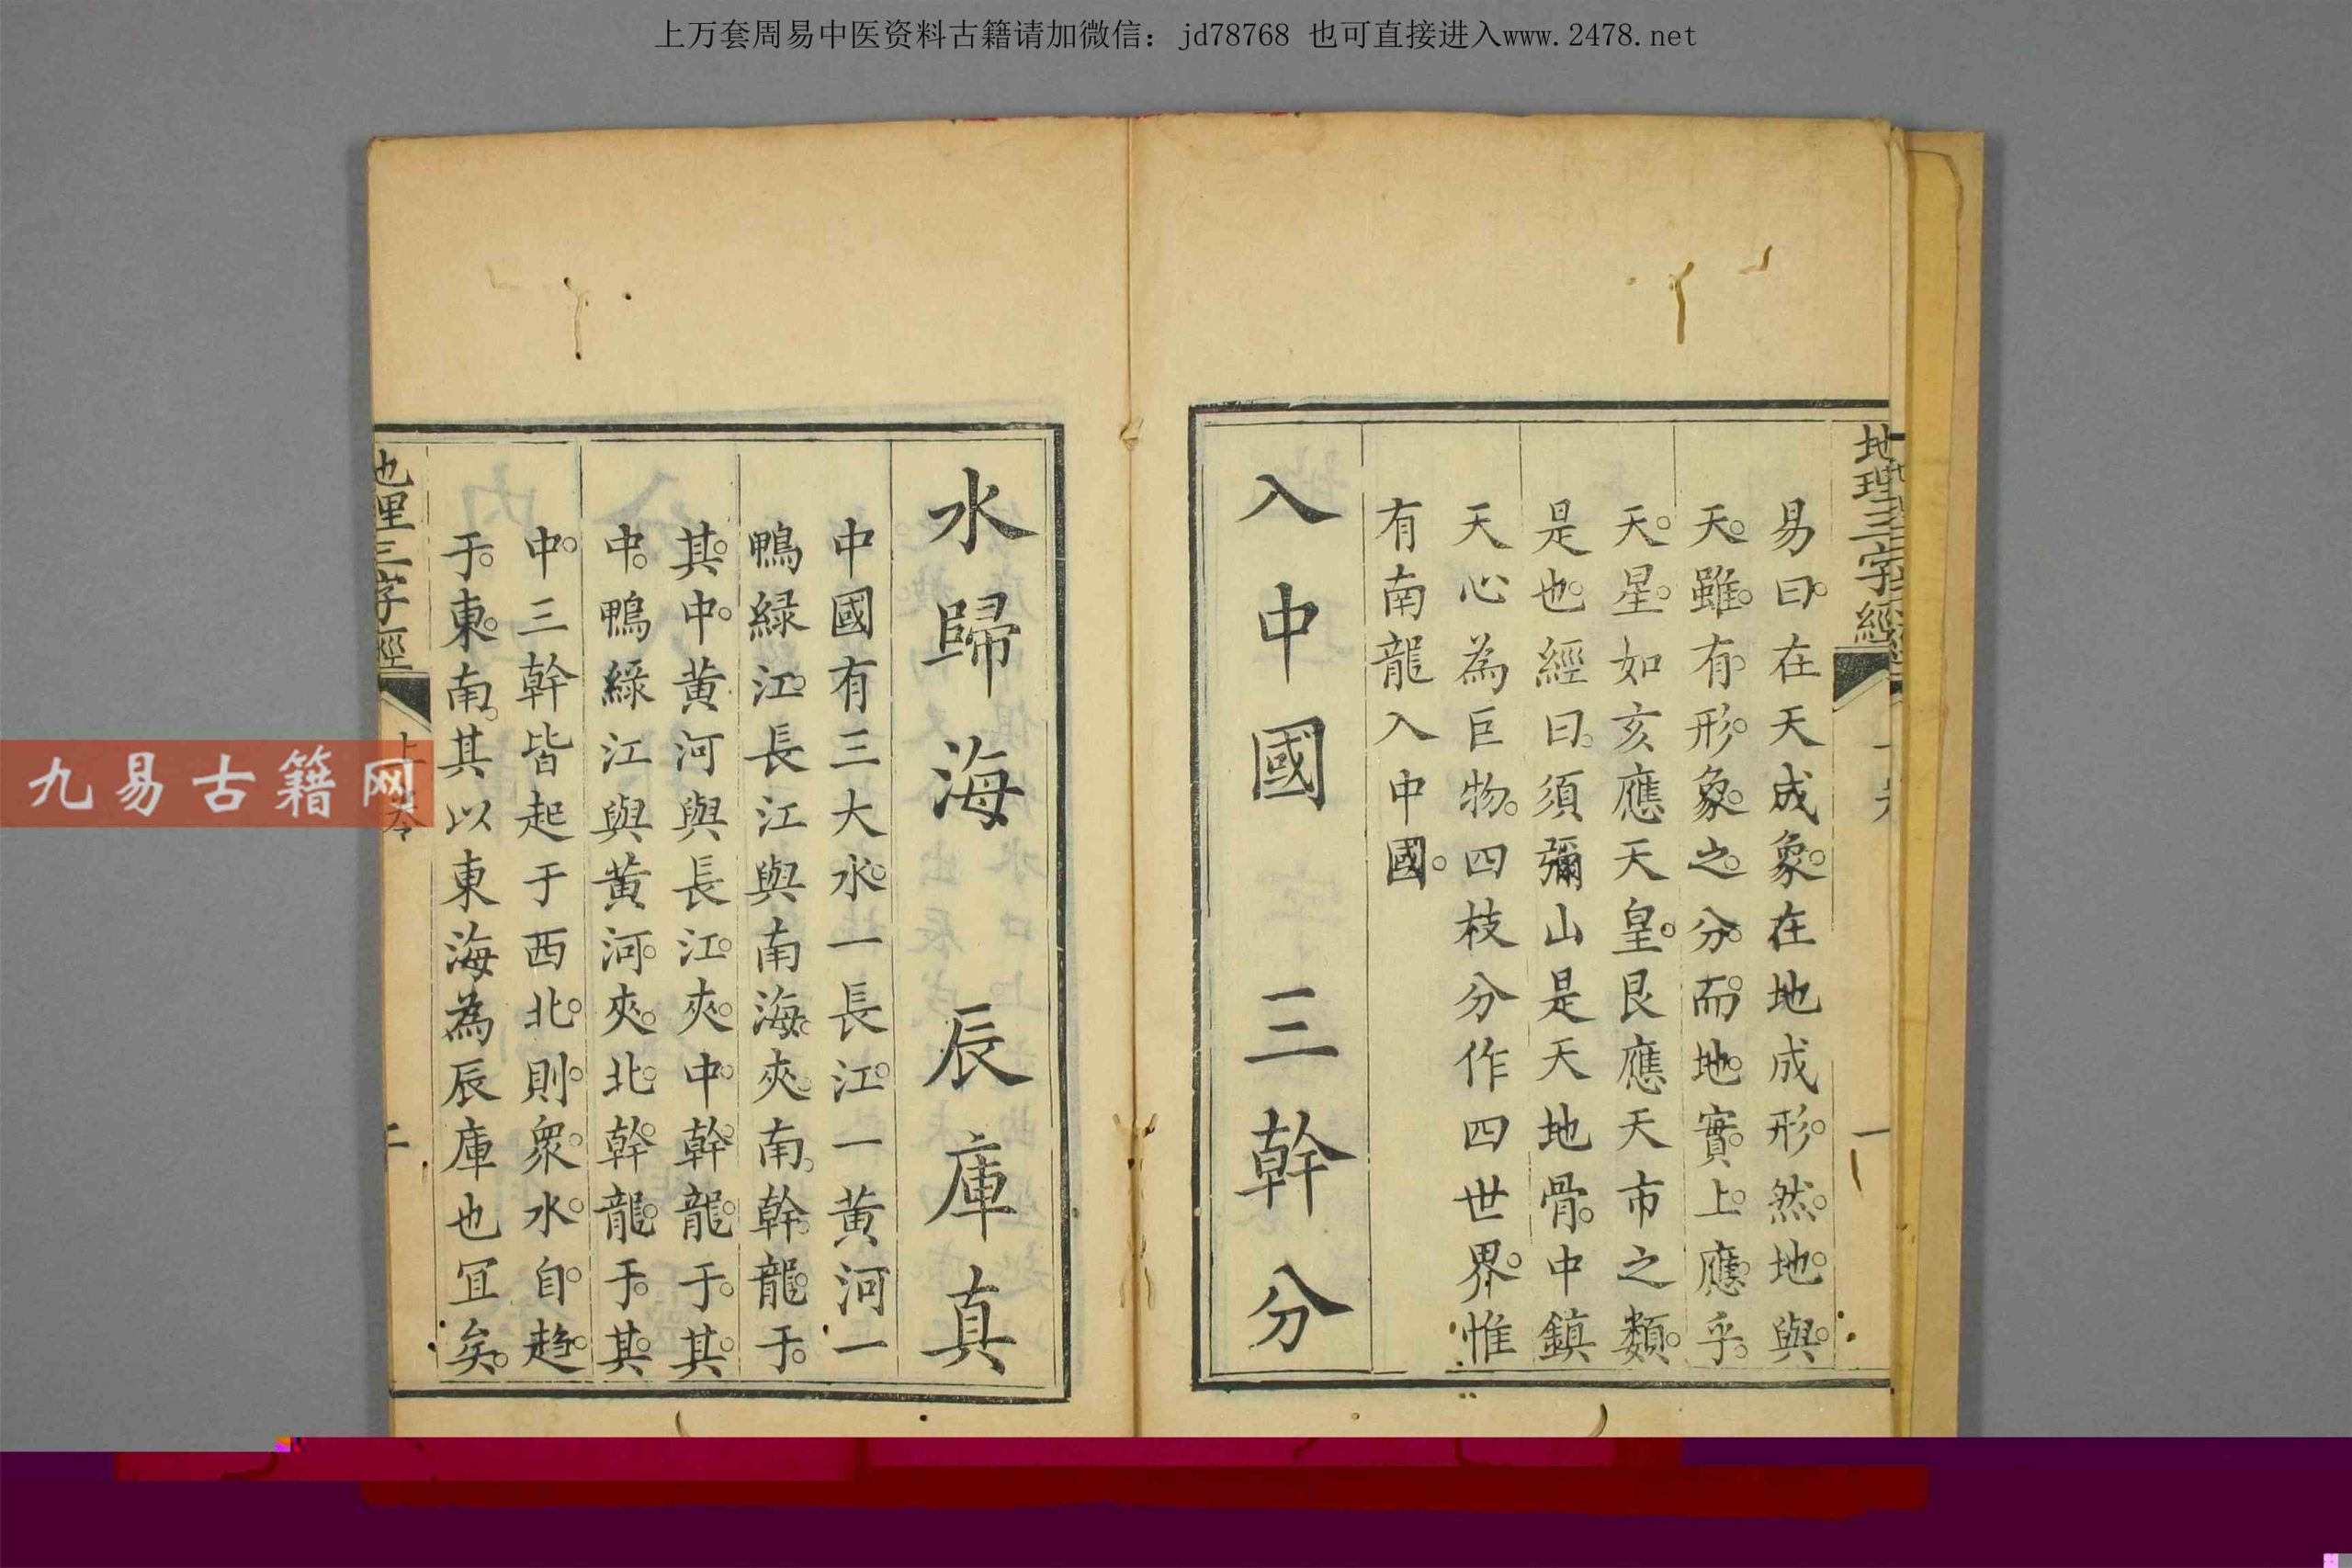 上万套周易中医资料古籍请加微信：jd78768 也可直接进入www.2478.net
地理三字經
一
易曰。在天成象。在地成形。然。地。與。
天。雖。有。形。象。之。分。而。地。實。上。應。乎。
天。星。如亥應天皇。艮應天市之類。
是也。經曰。須彌山是天地骨。中鎮
天心為巨物。四枝分作四世界。惟
有南龍入中國。
入中國 三幹分
水歸海 辰庫真
中國有三大水。一長江。一黃河一
鴨綠江。長江與南海。夾。南。幹。龍。于。
其。中。黃河與長江。夾。中。幹。龍。于。其。
中。鴨綠江與黃河。夾。北。幹。龍。于。其。
中。三幹皆起于西北。則。衆。水。自。趋。
于。東。南。其以東海為辰庫也宜矣。
地理三字經
上卷
二
九易古籍网